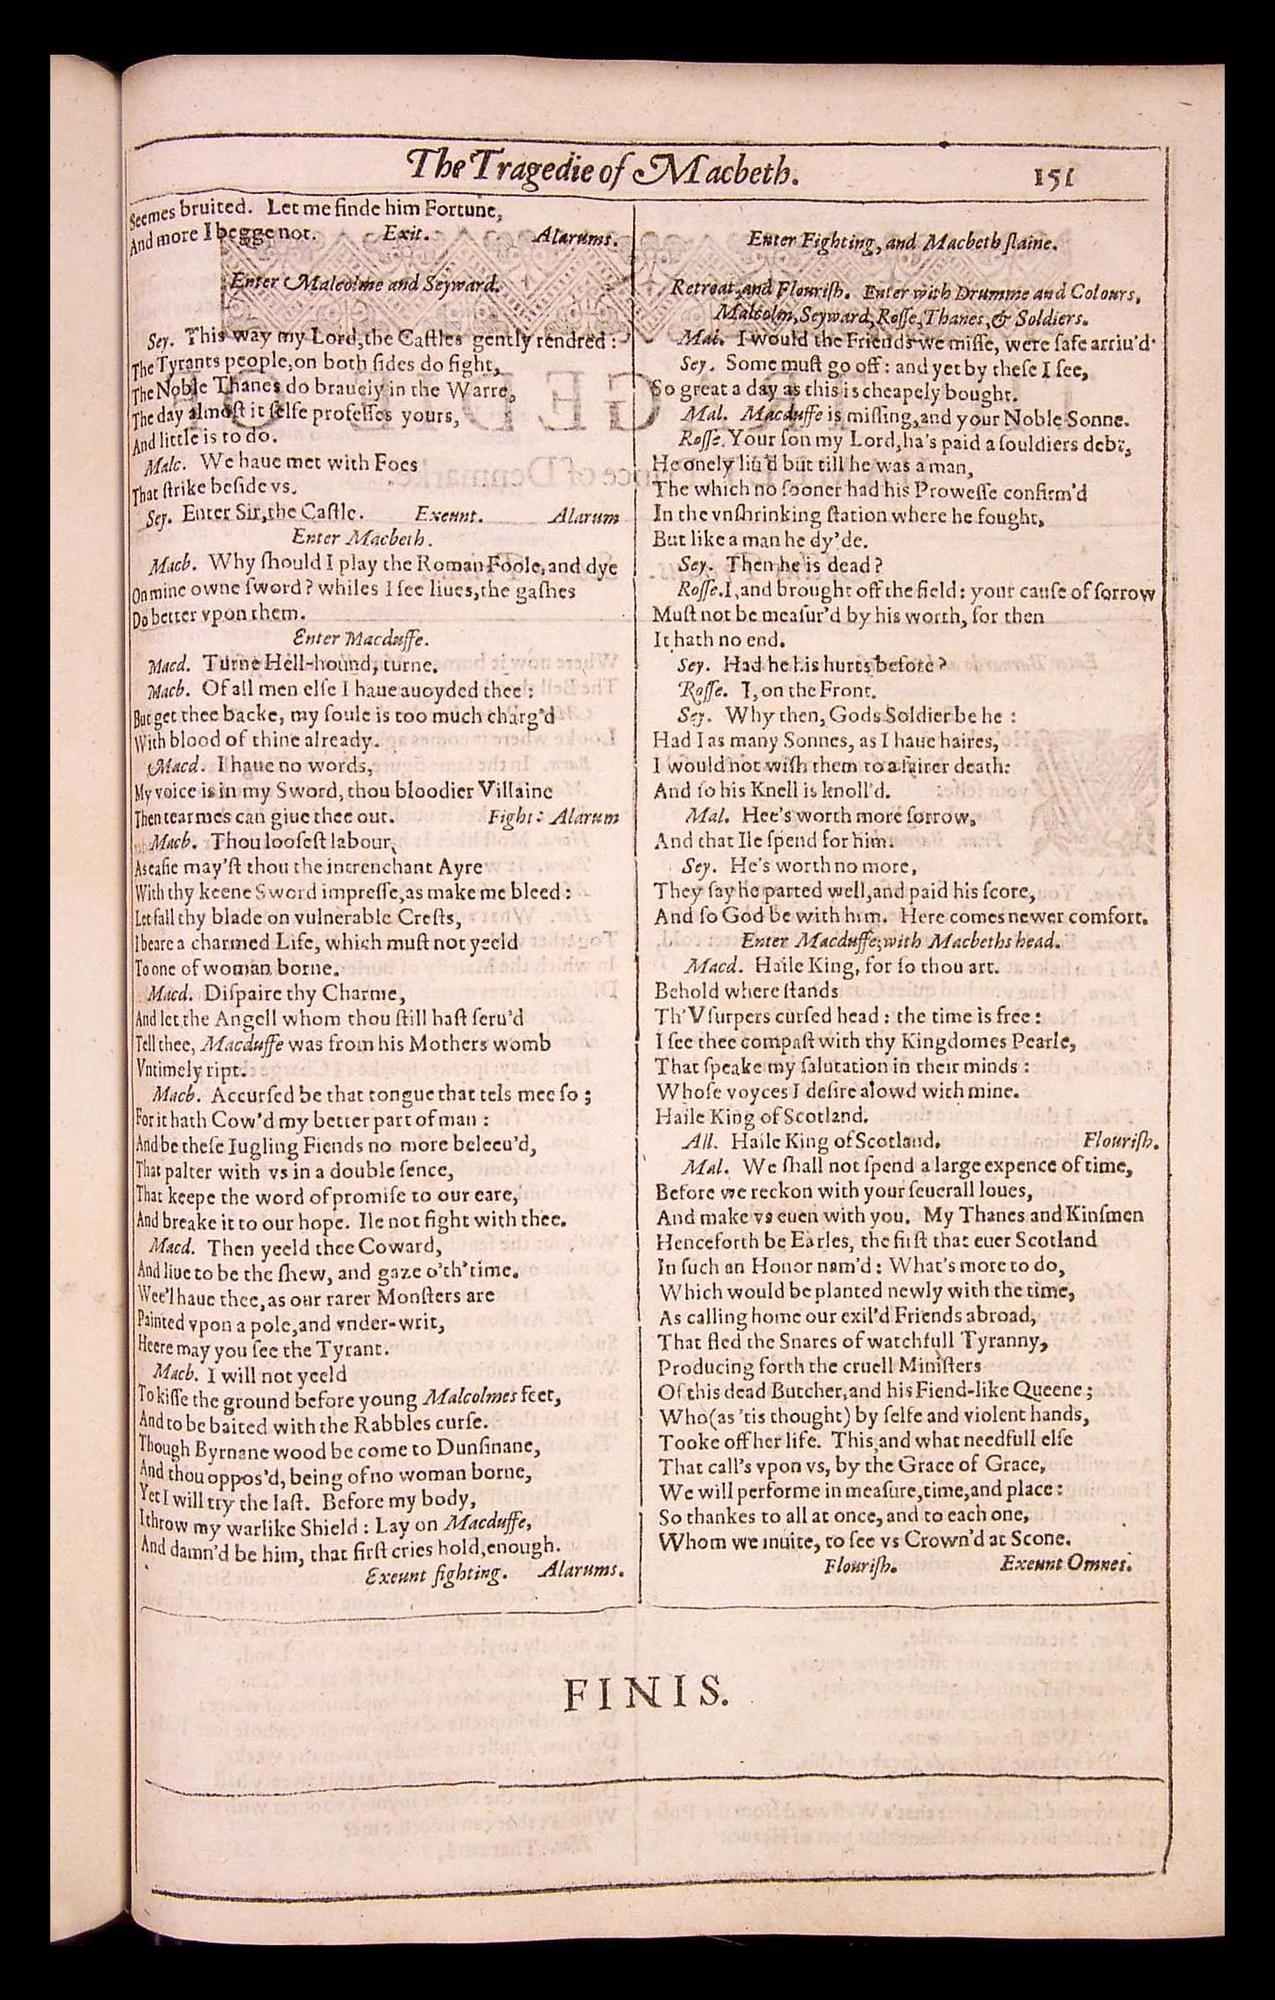 The Tragedie of Macbeth. 151
Seemes bruited. Let me finde him Fortune,
And more I begge not. Exit. Alarums.
Enter Malcolme and Seyward.
Sey. This way my Lord, the Castles gently rendred:
The Tyrants people, on both sides do fight,
The Noble Thanes do brauely in the Warre,
The day almost it selfe professes yours,
And little is to do.
Malc. We haue met with Foes
That strike beside vs.
Sey. Enter Sir, the Castle. Exeunt. Alarum
Enter Macbeth.
Macb. Why should I play the Roman Foole, and dye
On mine owne sword? whiles I see liues, the gashes
Do better vpon them.
Enter Macduffe.
Macd. Turne Hell-hound, turne.
Macb. Of all men else I haue auoyded thee:
But get thee backe, my soule is too much charg'd
With blood of thine already.
Macd. I haue no words,
My voice is in my Sword, thou bloodier Villaine
Then tearmes can giue thee out. Fight: Alarum
Macb. Thou loosest labour,
As easie may'st thou the intrenchant Ayre
With thy keene Sword impresse, as make me bleed:
Let fall thy blade on vulnerable Crests,
I beare a charmed Life, which must not yeeld
To one of woman borne.
Macd. Dispaire thy Charme,
And let the Angell whom thou still hast seru'd
Tell thee, Macduffe was from his Mothers womb
Vntimely ript.
Macb. Accursed be that tongue that tels mee so;
For it hath Cow'd my better part of man:
And be these Iugling Fiends no more beleeu'd,
That palter with vs in a double sence,
That keepe the word of promise to our eare,
And breake it to our hope. Ile not fight with thee.
Macd. Then yeeld thee Coward,
And liue to be the shew, and gaze o'th'time.
Wee'l haue thee, as our rarer Monsters are
Painted vpon a pole, and vnder-writ,
Heere may you see the Tyrant.
Macb. I will not yeeld
To kisse the ground before young Malcolmes feet,
And to be baited with the Rabbles curse.
Though Byrnane wood be come to Dunsinane,
And thou oppos'd, being of no woman borne,
Yet I will try the last. Before my body,
I throw my warlike Shield: Lay on Macduffe,
And damn'd be him, that first cries hold, enough.
Exeunt fighting. Alarums.
Enter Fighting, and Macbeth slaine.
Retreat, and Flourish. Enter with Drumme and Colours,
Malcolm, Seyward, Rosse, Thanes, & Soldiers.
Mal. I would the Friends we misse, were safe arriu'd.
Sey. Some must go off: and yet by these I see,
So great a day as this is cheapely bought.
Mal. Macduffe is missing, and your Noble Sonne.
Rosse. Your son my Lord, ha's paid a souldiers debt,
He onely liu'd but till he was a man,
The which no sooner had his Prowesse confirm'd
In the vnshrinking station where he fought,
But like a man he dy'de.
Sey. Then he is dead?
Rosse. I, and brought off the field: your cause of sorrow
Must not be measur'd by his worth, for then
It hath no end.
Sey. Had he his hurts before?
Rosse. I, on the Front.
Sey. Why then, Gods Soldier be he:
Had I as many Sonnes, as I haue haires,
I would not wish them to a fairer death:
And so his Knell is knoll'd.
Mal. Hee's worth more sorrow,
And that Ile spend for him.
Sey. He's worth no more,
They say he parted well, and paid his score,
And so God be with him. Here comes newer comfort.
Enter Macduffe; with Macbeths head.
Macd. Haile King, for so thou art.
Behold where stands
Th'Vsurpers cursed head: the time is free:
I see thee compast with thy Kingdomes Pearle,
That speake my salutation in their minds:
Whose voyces I desire alowd with mine.
Haile King of Scotland.
All. Haile King of Scotland. Flourish.
Mal. We shall not spend a large expence of time,
Before we reckon with your seuerall loues,
And make vs euen with you. My Thanes and Kinsmen
Henceforth be Earles, the first that euer Scotland
In such an Honor nam'd: What's more to do,
Which would be planted newly with the time,
As calling home our exil'd Friends abroad,
That fled the Snares of watchfull Tyranny,
Producing forth the cruell Ministers
Of this dead Butcher, and his Fiend-like Queene;
Who (as 'tis thought) by selfe and violent hands,
Tooke off her life. This, and what needfull else
That call's vpon vs, by the Grace of Grace,
We will performe in measure, time, and place:
So thanks to all at once, and to each one,
Whom we inuite, to see vs Crown'd at Scone.
Flourish. Exeunt Omnes.
FINIS.